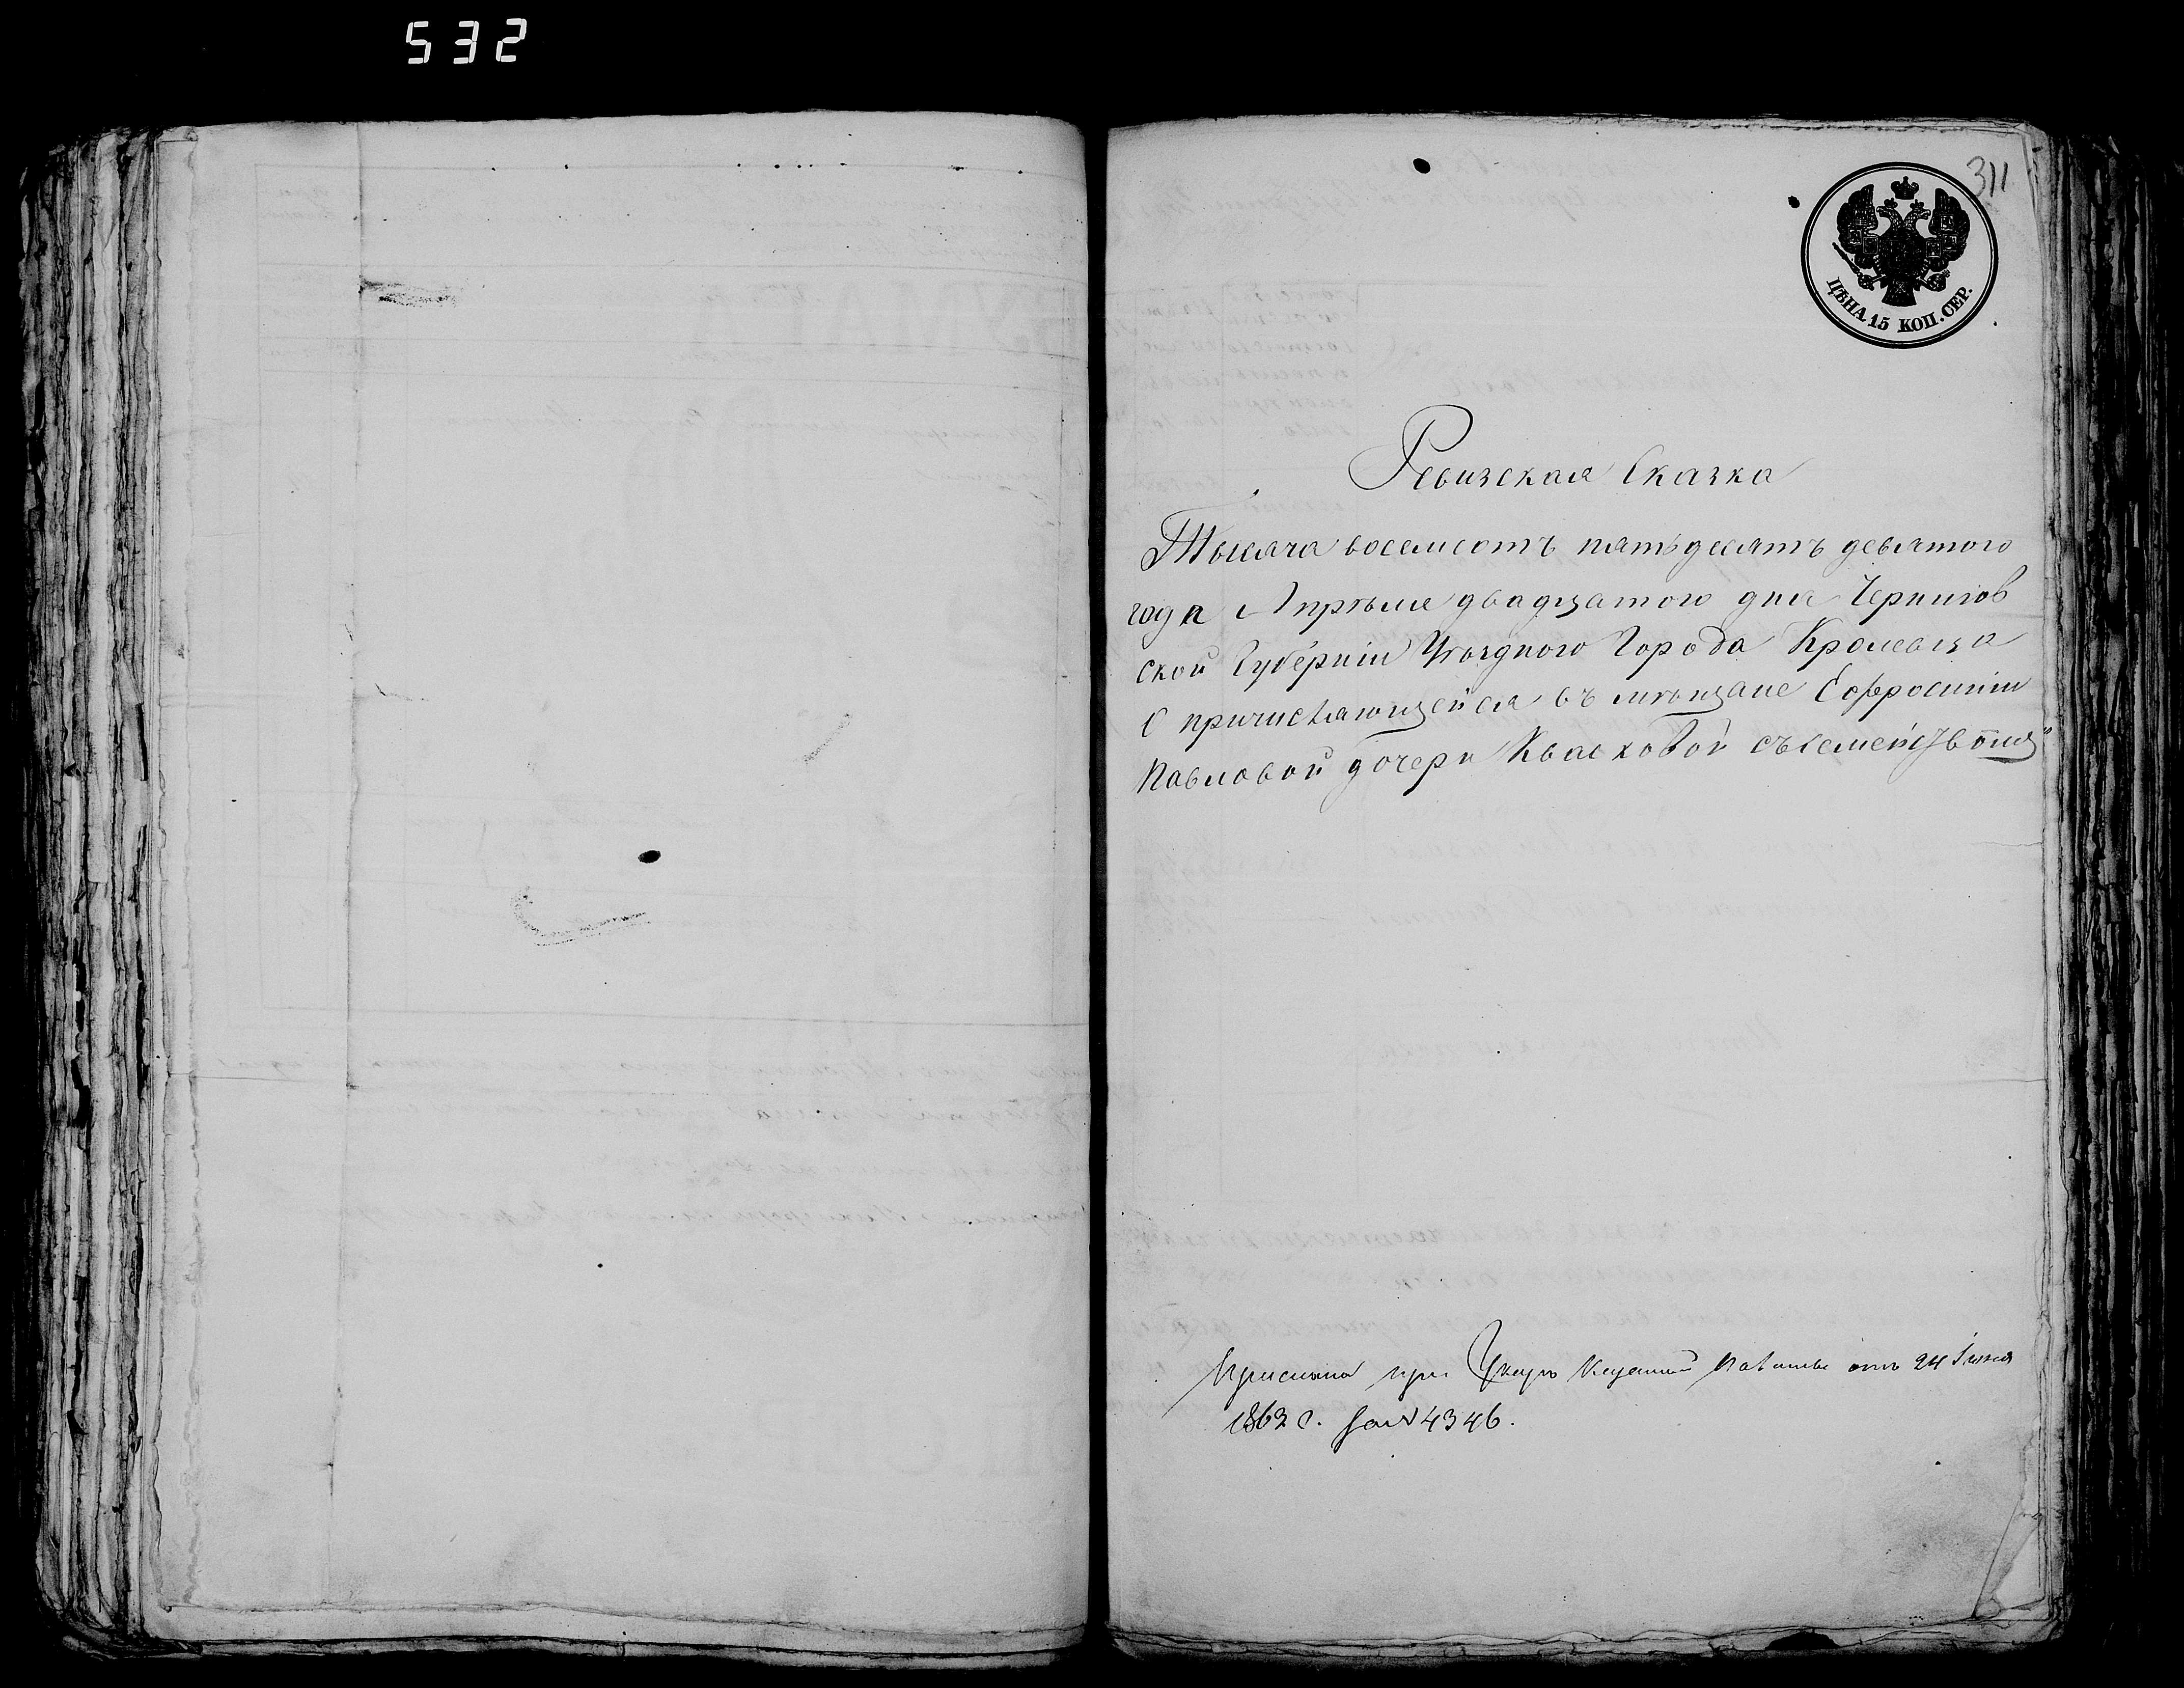 532
311
ЦѢНА 15 КОП. СЕР.
Ревизская Сказка
Тысяча восемсотъ пятьдесятъ девятого
года Апрѣля двадцатого дня Чернигов
ской Губерніи Уѣздного Города Кролевца
О причисляющейся въ мѣщане Ефросиніи
Павловой дочери Квасковой съ семействомъ
Прислана при Указѣ Казенной Палаты отъ 24 Іюня
1863 г. за № 4346.